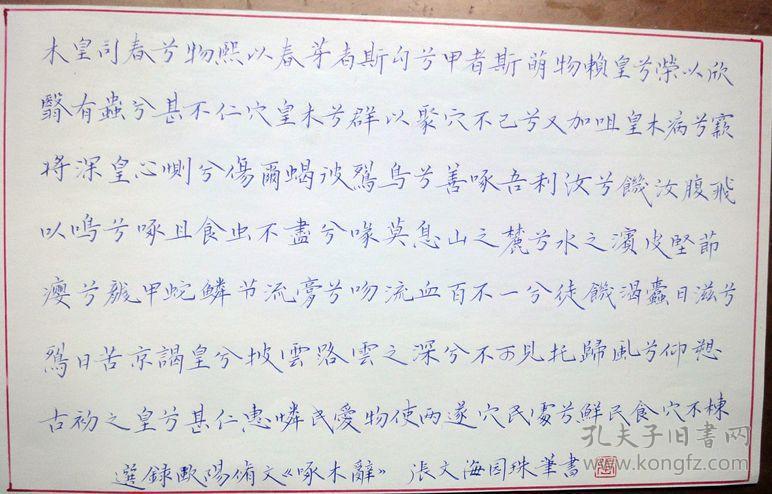 木皇司春兮物熙以春芽者斯勾兮甲者斯萌物賴皇兮榮以欣
翳有蟲兮甚不仁穴皇木兮群以聚穴不已兮又加咀皇木病兮竅
將深皇心惻兮傷爾蝎彼鴷鳥兮善啄吾利汝兮饑汝腹飛
以鳴兮啄且食虫不盡兮喙莫息山之麓兮水之濱皮堅節
癭兮龍甲蛇鱗节流兮吻流血百不一兮徒饑渴蠹日滋兮
鴷日苦京謁皇兮披雲路雲之深兮不可見托歸風兮仰愬
古初之皇兮甚仁惠憐民愛物使兩遂穴民處兮鮮民食穴不棟
選錄歐陽脩文《啄木辭》 張文海园珠筆書
孔夫子旧书网
www.kongfz.com